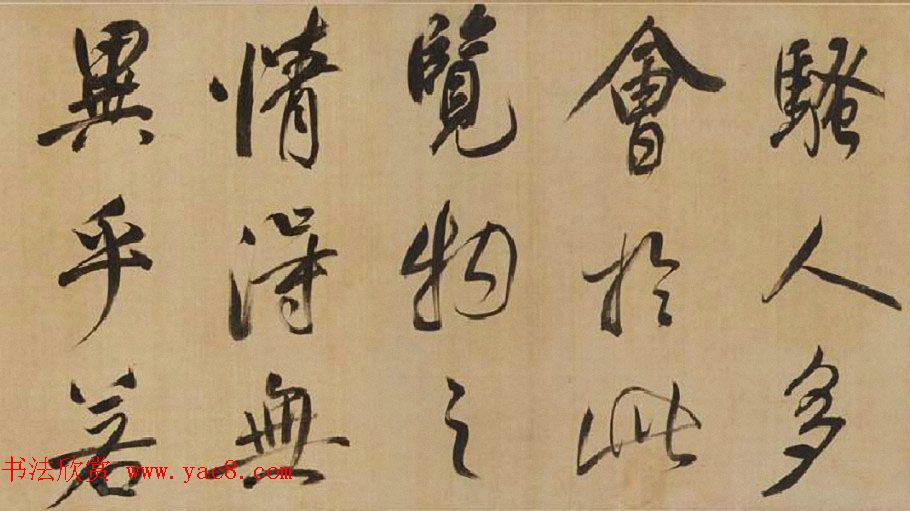 騷人多
會於此
覽物之
情得無
異乎若
书法欣赏 www.yac8.com